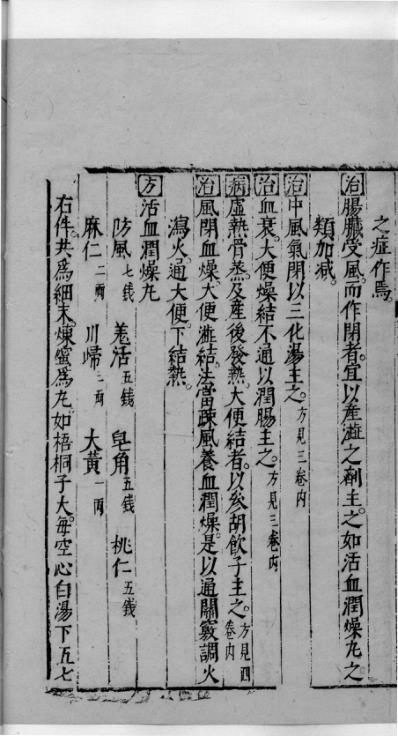 之症作焉
治腸臟受風而作閉者。宜以產澁之劑主之。如活血潤燥丸之
類加減。
治中風氣閉以三化湯主之。方見三卷內
治血衰。大便燥結不通以潤腸主之。方見三卷內
病虛熱骨蒸及產後發熱。大便結者。以參胡飲子主之。方見四卷內
治風閉血燥。大便澁結。法當疎風養血潤燥。是以通關竅調火
瀉火。通大便。下結熱。
方活血潤燥丸
防風七錢 羗活五錢 皂角五錢 桃仁五錢
麻仁二兩 川歸二兩 大黃一兩
右件。共爲細末。煉蜜爲丸。如梧桐子大。每空心白湯下五七